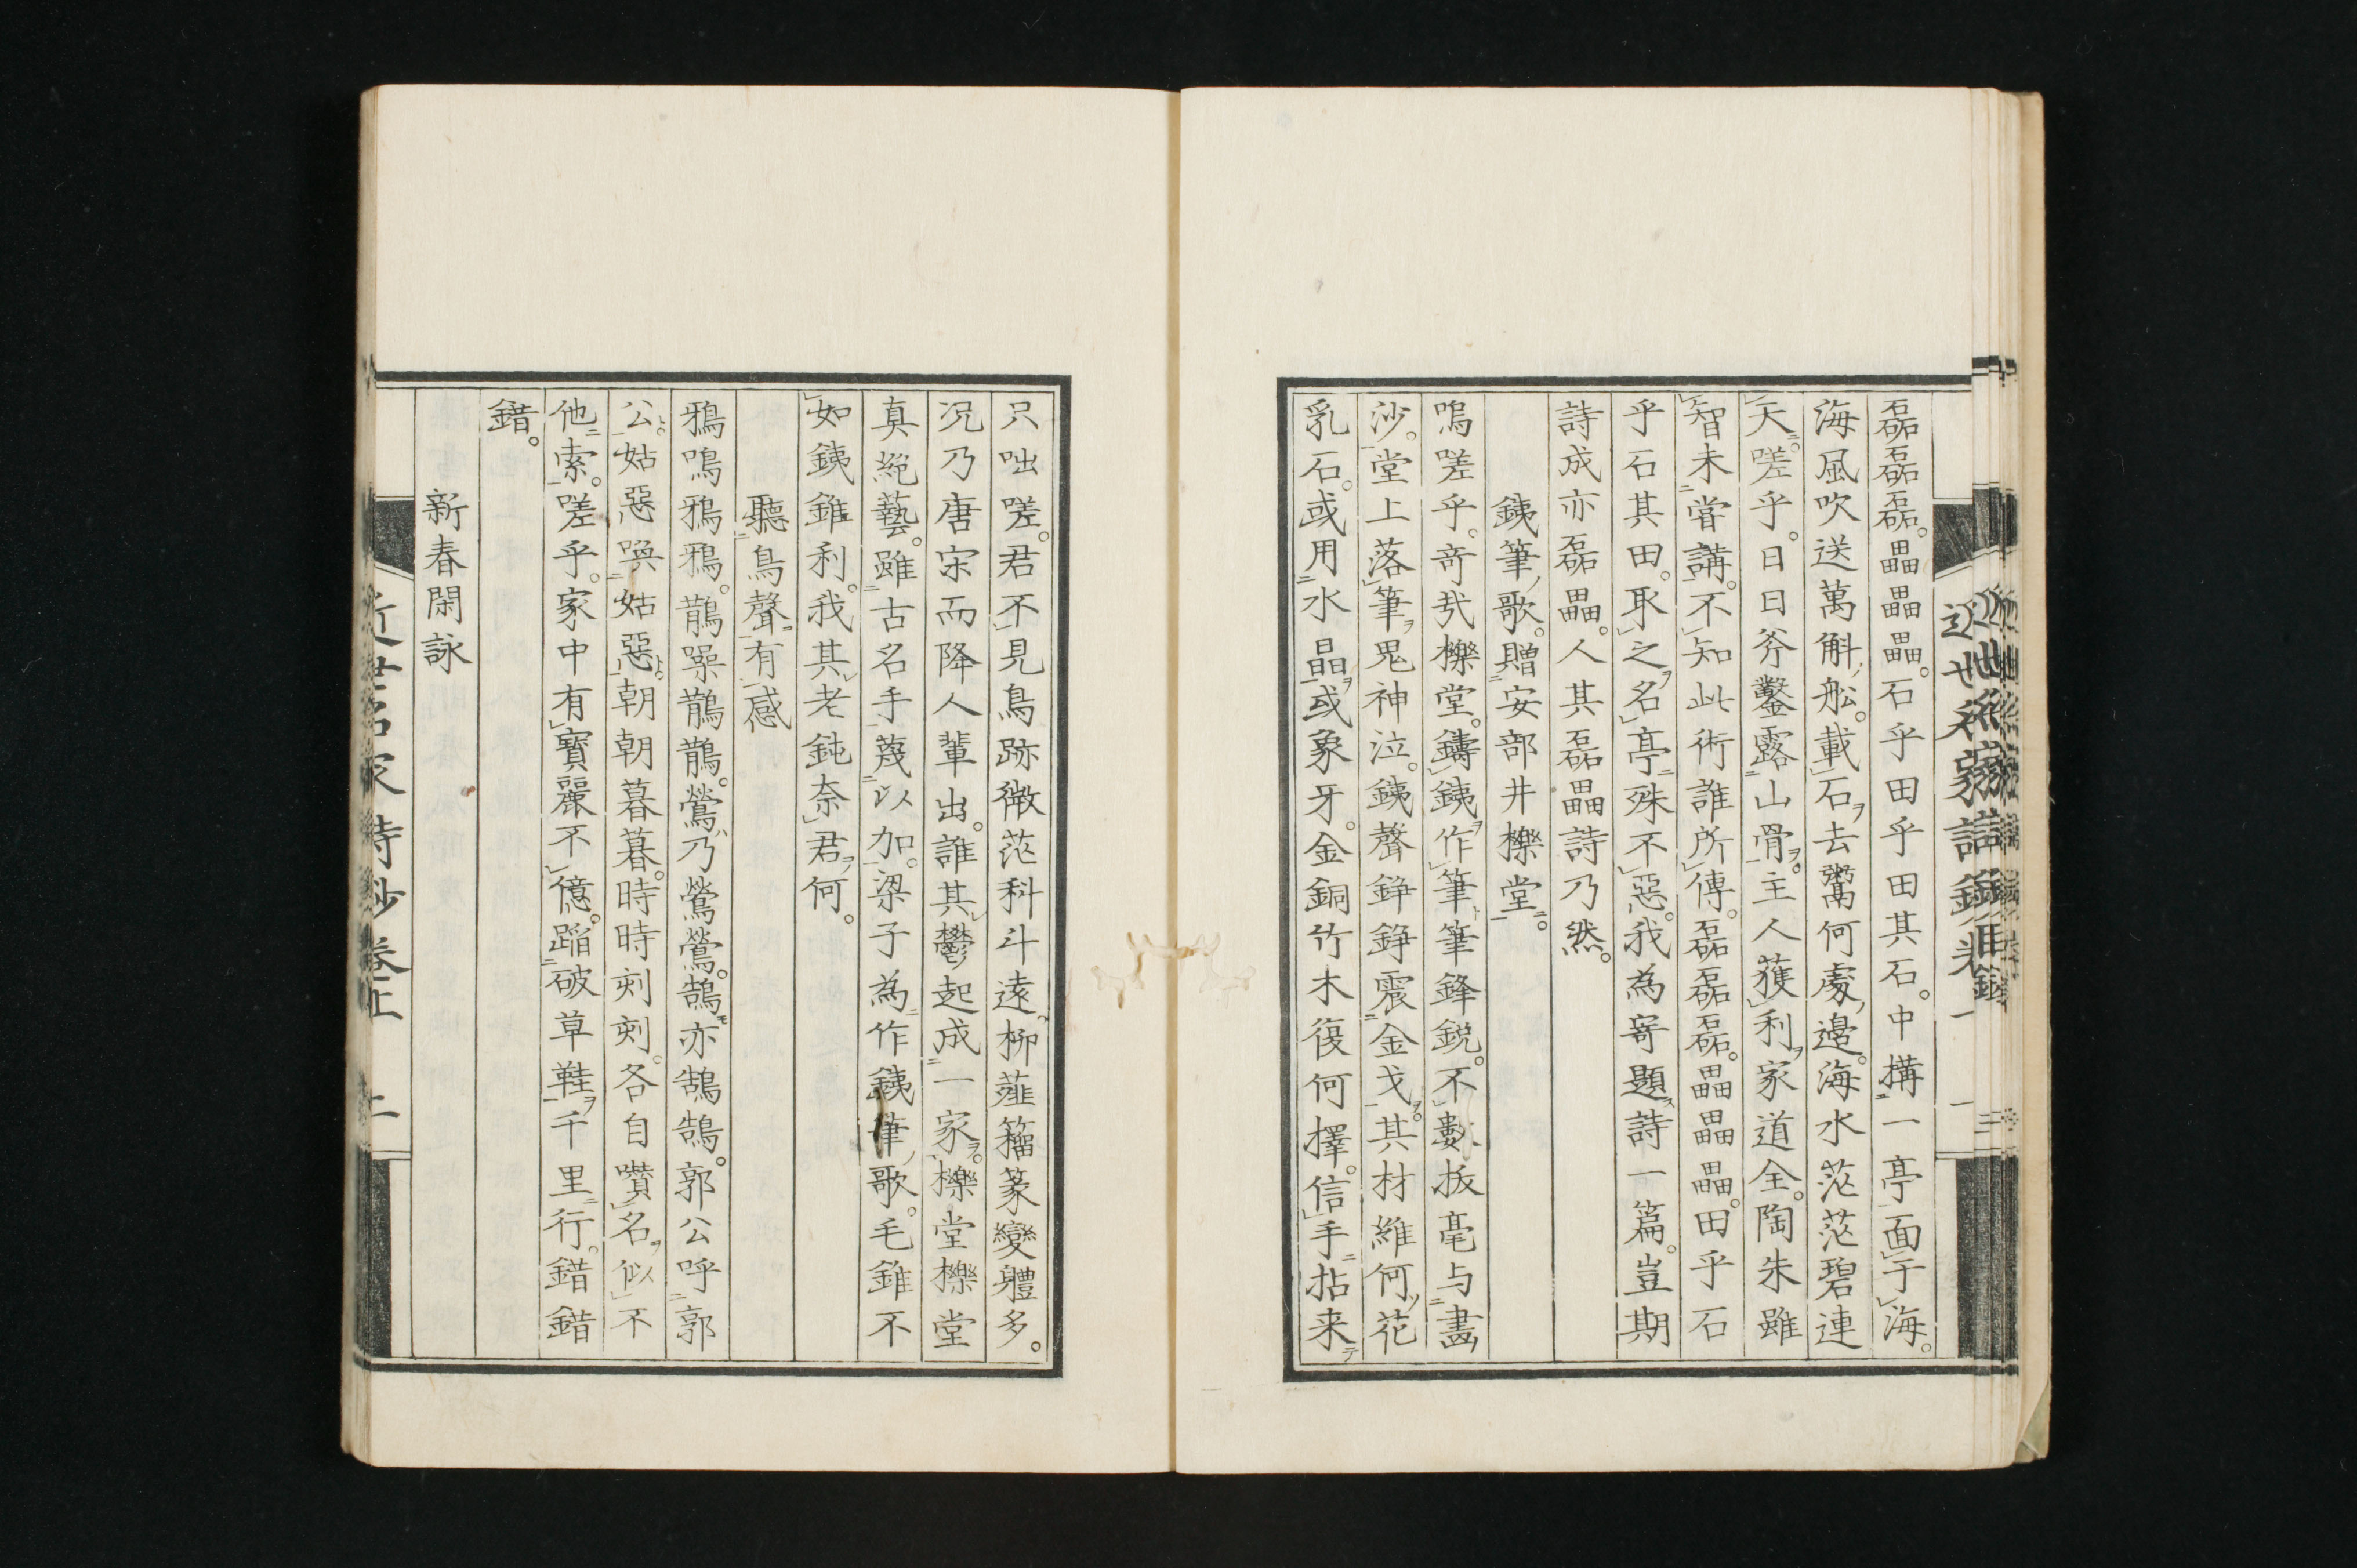 磊磊磊。畾畾畾。石乎田乎田其石。中構一亭面于海。
海風吹送萬斛舩。載石去鬻何處邊。海水茫茫碧連
天。嗟乎。日日斧鑿露山骨。主人獲利家道全。陶朱雖
智未嘗講。不知此術誰所傳。磊磊磊。畾畾畾。田乎石
乎石其田。取之名亭殊不惡。我為寄題詩一篇。豈期
詩成亦磊畾。人其磊畾詩乃然。
銕筆歌。贈安部井櫟堂。
嗚嗟乎。奇哉櫟堂。鑄銕作筆筆鋒銳。不數抜毫与畫
沙。堂上落筆鬼神泣。銕聲錚錚震金戈。其材維何花
乳石。或用水晶或象牙。金銅竹木復何擇。信手拈来
只咄嗟。君不見鳥跡微茫科斗遠。柳薤籀篆變軆多。
况乃唐宋而降人輩出。誰其鬱起成一家。櫟堂櫟堂
真絕藝。雖古名手蔑以加。梁子為作銕筆歌。毛錐不
如銕錐利。我其老鈍奈君何。
聽鳥聲有感
鴉鳴鴉鴉。鵲噪鵲鵲。鶯乃鶯鶯。鵠亦鵠鵠。郭公呼郭
公。姑惡喚姑惡。朝朝暮暮。時時刻刻。各自囋名似不
他索。嗟乎。家中有寶麗不億。蹈破草鞋千里行。錯錯
錯。
新春閑詠
近世名家詩鈔卷上